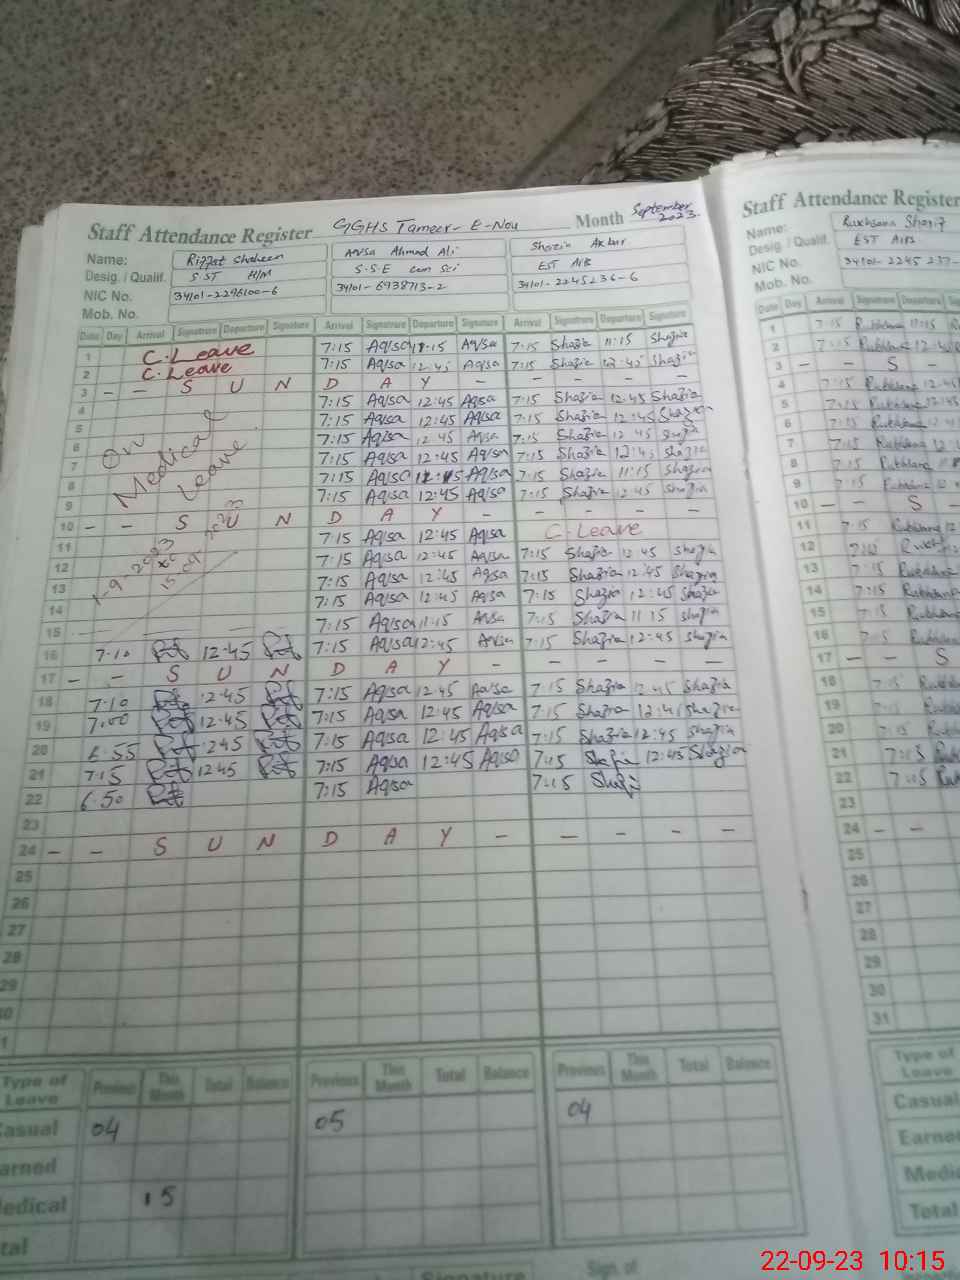 Staff Attendance Register GGHS Tameer-E-Nou Month September 2023.
Name: Riffat Shaheen Aqsa Ahmad Ali Shazia Akbar
Desig. / Qualif. SST H/M S.S.E com Sci EST AIB
NIC No. 34101-2296100-6 34101-6938713-2 34101-2245236-6
Mob. No.
Date Day Arrival Signature Departure Signature Arrival Signature Departure Signature Arrival Signature Departure Signature
1 C.Leave 7:15 Aqsa 11:15 Aqsa 7:15 Shazia 11:15 Shazia
2 C.Leave 7:15 Aqsa 12:45 Aqsa 7:15 Shazia 12:45 Shazia
3 - - S U N D A Y - - - - -
4 7:15 Aqsa 12:45 Aqsa 7:15 Shazia 12:45 Shazia
5 7:15 Aqsa 12:45 Aqsa 7:15 Shazia 12:45 Shazia
6 On 7:15 Aqsa 12 45 Aqsa 7:15 Shazia 12 45 Shazia
7 Medical 7:15 Aqsa 12:45 Aqsa 7:15 Shazia 12:45 Shazia
8 Leave 7:15 Aqsa 11:15 Aqsa 7:15 Shazia 11:15 Shazia
9 7:15 Aqsa 12:45 Aqsa 7:15 Shazia 12 45 Shazia
10 - - S U N D A Y - - - - -
11 7:15 Aqsa 12:45 Aqsa C.Leave
12 1-9-2023 7:15 Aqsa 12:45 Aqsa 7:15 Shazia 12:45 Shazia
13 to 7:15 Aqsa 12:45 Aqsa 7:15 Shazia 12:45 Shazia
14 15-09-2023 7:15 Aqsa 12:45 Aqsa 7:15 Shazia 12:45 Shazia
15 7:15 Aqsa 11:15 Aqsa 7:15 Shazia 11 15 Shazia
16 7:10 12:45 7:15 Aqsa 12:45 Aqsa 7:15 Shazia 12:45 Shazia
17 - - S U N D A Y - - - - -
18 7:10 12:45 7:15 Aqsa 12:45 Aqsa 7:15 Shazia 12:45 Shazia
19 7:00 12:45 7:15 Aqsa 12:45 Aqsa 7:15 Shazia 12:45 Shazia
20 6:55 12:45 7:15 Aqsa 12:45 Aqsa 7:15 Shazia 12:45 Shazia
21 7:15 12:45 7:15 Aqsa 12:45 Aqsa 7:15 Shazia 12:45 Shazia
22 6:50 7:15 Aqsa 7:15 Shazia
23
24 - - S U N D A Y - - - - -
25
26
27
28
29
30
Type of Leave Previous This Month Total Balance Previous This Month Total Balance Previous This Month Total Balance
Casual 04 05 04
Earned
Medical 15
Total
Signature Sign. of
Staff Attendance Register
Name: Rukhsana Sharif
Desig. / Qualif. EST AIB
NIC No. 34101-2245 237-
Mob. No.
Date Day Arrival Signature Departure
1 7:15 Rukhsana 11:15
2 7:15 Rukhsana 12:45
3 - - S
4 7:15 Rukhsana 12:45
5 7:15 Rukhsana 12:45
6 7:15 Rukhsana
7 7:15 Rukhsana
8 7:15 Rukhsana
9 7:15 Rukhsana
10 - - S
11 7:15 Rukhsana
12
13 7:15 Rukhsana
14 7:15 Rukhsana
15 7:15 Rukhsana
16 7:15 Rukhsana
17 - - S
18 7:15
19 7:15
20 7:15
21 7:15
22 7:15
23
24 - -
25
26
27
28
29
30
31
Type of Leave
Casual
Earned
Medic
Total
22-09-23 10:15